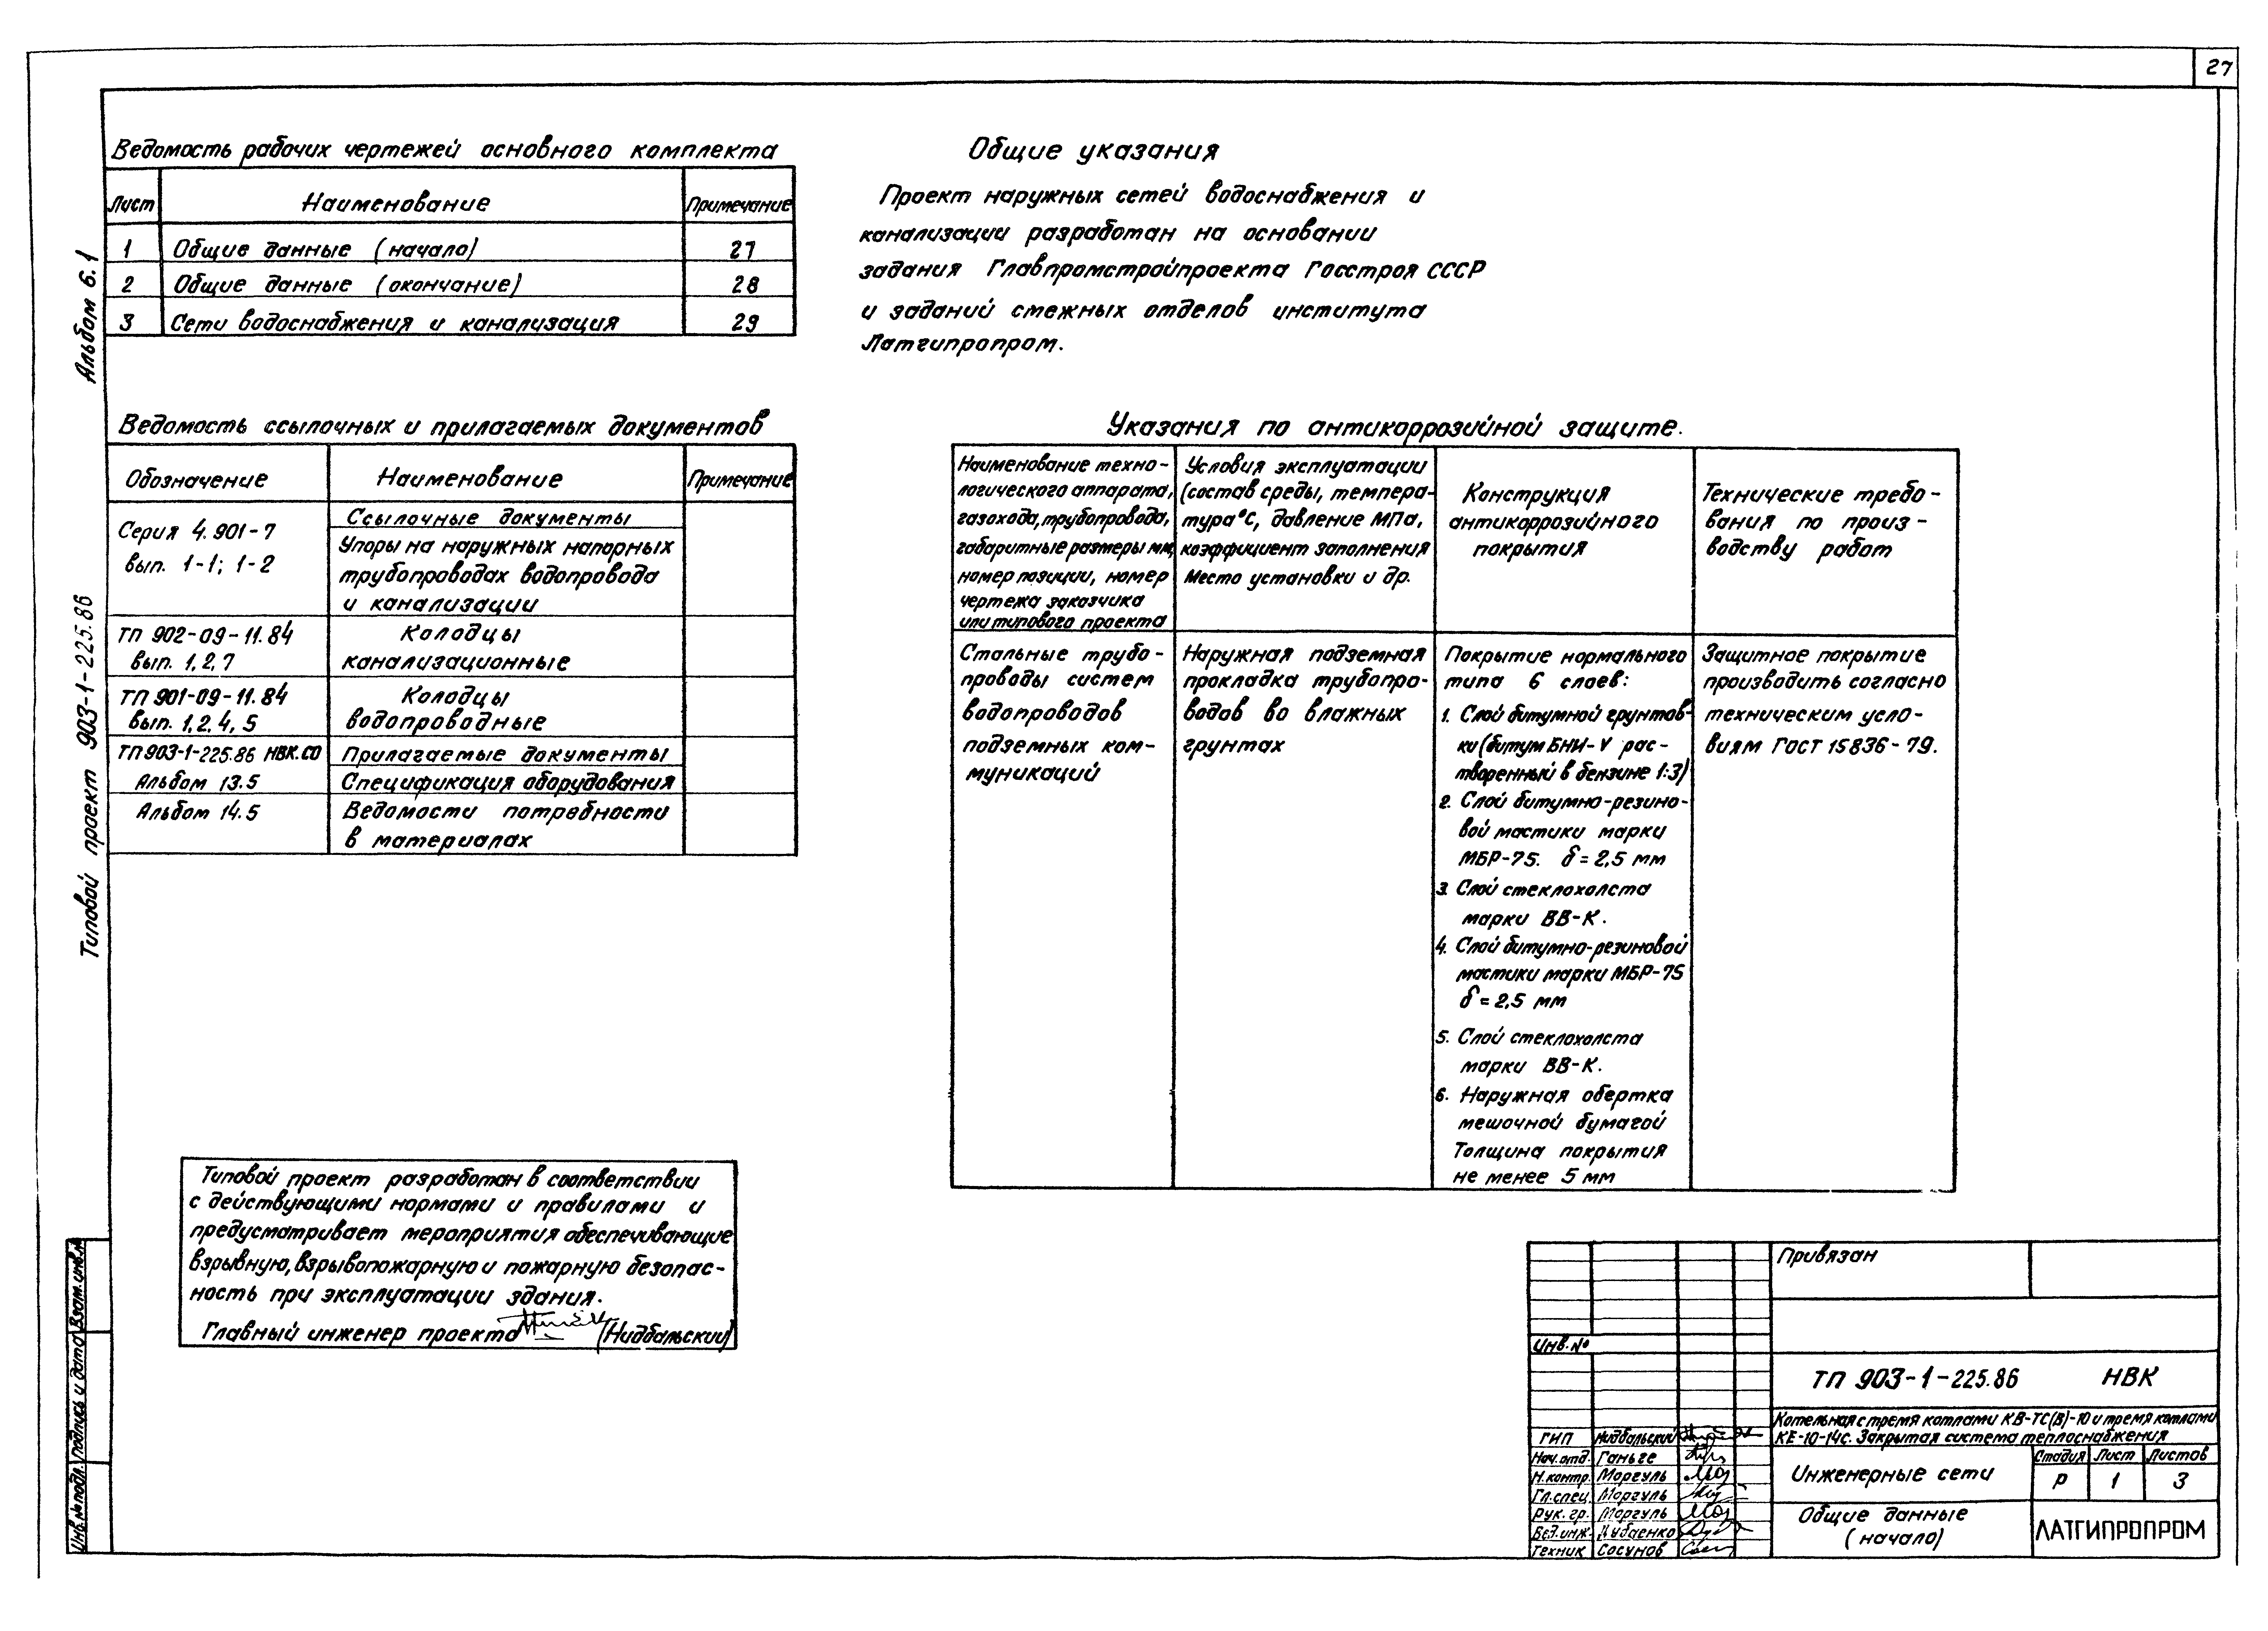 27
Альбом 6.1
Типовой проект 903-1-225.86
Ведомость рабочих чертежей основного комплекта
Лист Наименование Примечание
1 Общие данные (начало) 27
2 Общие данные (окончание) 28
3 Сети водоснабжения и канализация 29
Ведомость ссылочных и прилагаемых документов
Обозначение Наименование Примечание
Ссылочные документы
Серия 4.901-7
вып. 1-1; 1-2
Упоры на наружных напорных
трубопроводах водопровода
и канализации
ТП 902-09-11.84 Колодцы
вып. 1,2,7 канализационные
ТП 901-09-11.84 Колодцы
вып. 1,2,4,5 водопроводные
ТП 903-1-225.86 НВК.СО Прилагаемые документы
Альбом 13.5 Спецификация оборудования
Альбом 14.5 Ведомости потребности
в материалах
Общие указания
Проект наружных сетей водоснабжения и
канализации разработан на основании
задания Главпромстройпроекта Госстроя СССР
и заданий смежных отделов института
Латгипропром.
Указания по антикоррозийной защите.
Наименование техно-
логического аппарата,
газохода, трубопровода,
габаритные размеры мм,
номер позиции, номер
чертежа заказчика
или типового проекта
Условия эксплуатации
(состав среды, темпера-
тура°С, давление МПа,
коэффициент заполнения
Место установки и др.
Конструкция
антикоррозийного
покрытия
Технические требо-
вания по произ-
водству работ
Стальные трубо-
проводы систем
водопроводов
подземных ком-
муникаций
Наружная подземная
прокладка трубопро-
водов во влажных
грунтах
Покрытие нормального
типа 6 слоев:
1. Слой битумной грунтов-
ки (битум БНИ-V рас-
творенный в бензине 1:3)
2. Слой битумно-резино-
вой мастики марки
МБР-75. δ = 2,5 мм
3. Слой стеклохолста
марки ВВ-К.
4. Слой битумно-резиновой
мастики марки МБР-75
δ = 2,5 мм
5. Слой стеклохолста
марки ВВ-К.
6. Наружная обертка
мешочной бумагой
Толщина покрытия
не менее 5 мм
Защитное покрытие
производить согласно
техническим усло-
виям ГОСТ 15836-79.
Типовой проект разработан в соответствии
с действующими нормами и правилами и
предусматривает мероприятия обеспечивающие
взрывную, взрывопожарную и пожарную безопас-
ность при эксплуатации здания.
Главный инженер проекта (Нидбальский)
Инв.№ подл. Подпись и дата Взам.инв.№
Привязан
Инв.№
ТП 903-1-225.86 НВК
Котельная с тремя котлами КВ-ТС(В)-10 и тремя котлами
КЕ-10-14с. Закрытая система теплоснабжения
ГИП Нидбальский
Нач.отд. Ганьге
Н.контр. Моргуль
Гл.спец. Моргуль
Рук.гр. Моргуль
Вед.инж. Дубаенко
Техник Сосунов
Инженерные сети
Стадия Лист Листов
Р 1 3
Общие данные
(начало)
ЛАТГИПРОПРОМ